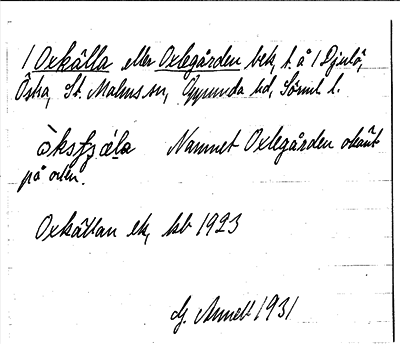 1 Oxkälla eller Oxlegården bek, t. å 1 Djulö,
Östra, St. Malms sn, Oppunda hd, Söml l.
Namnet Oxlegården okänt
på orten.
Oxkällan ek, kb 1923
G. Annell 1931